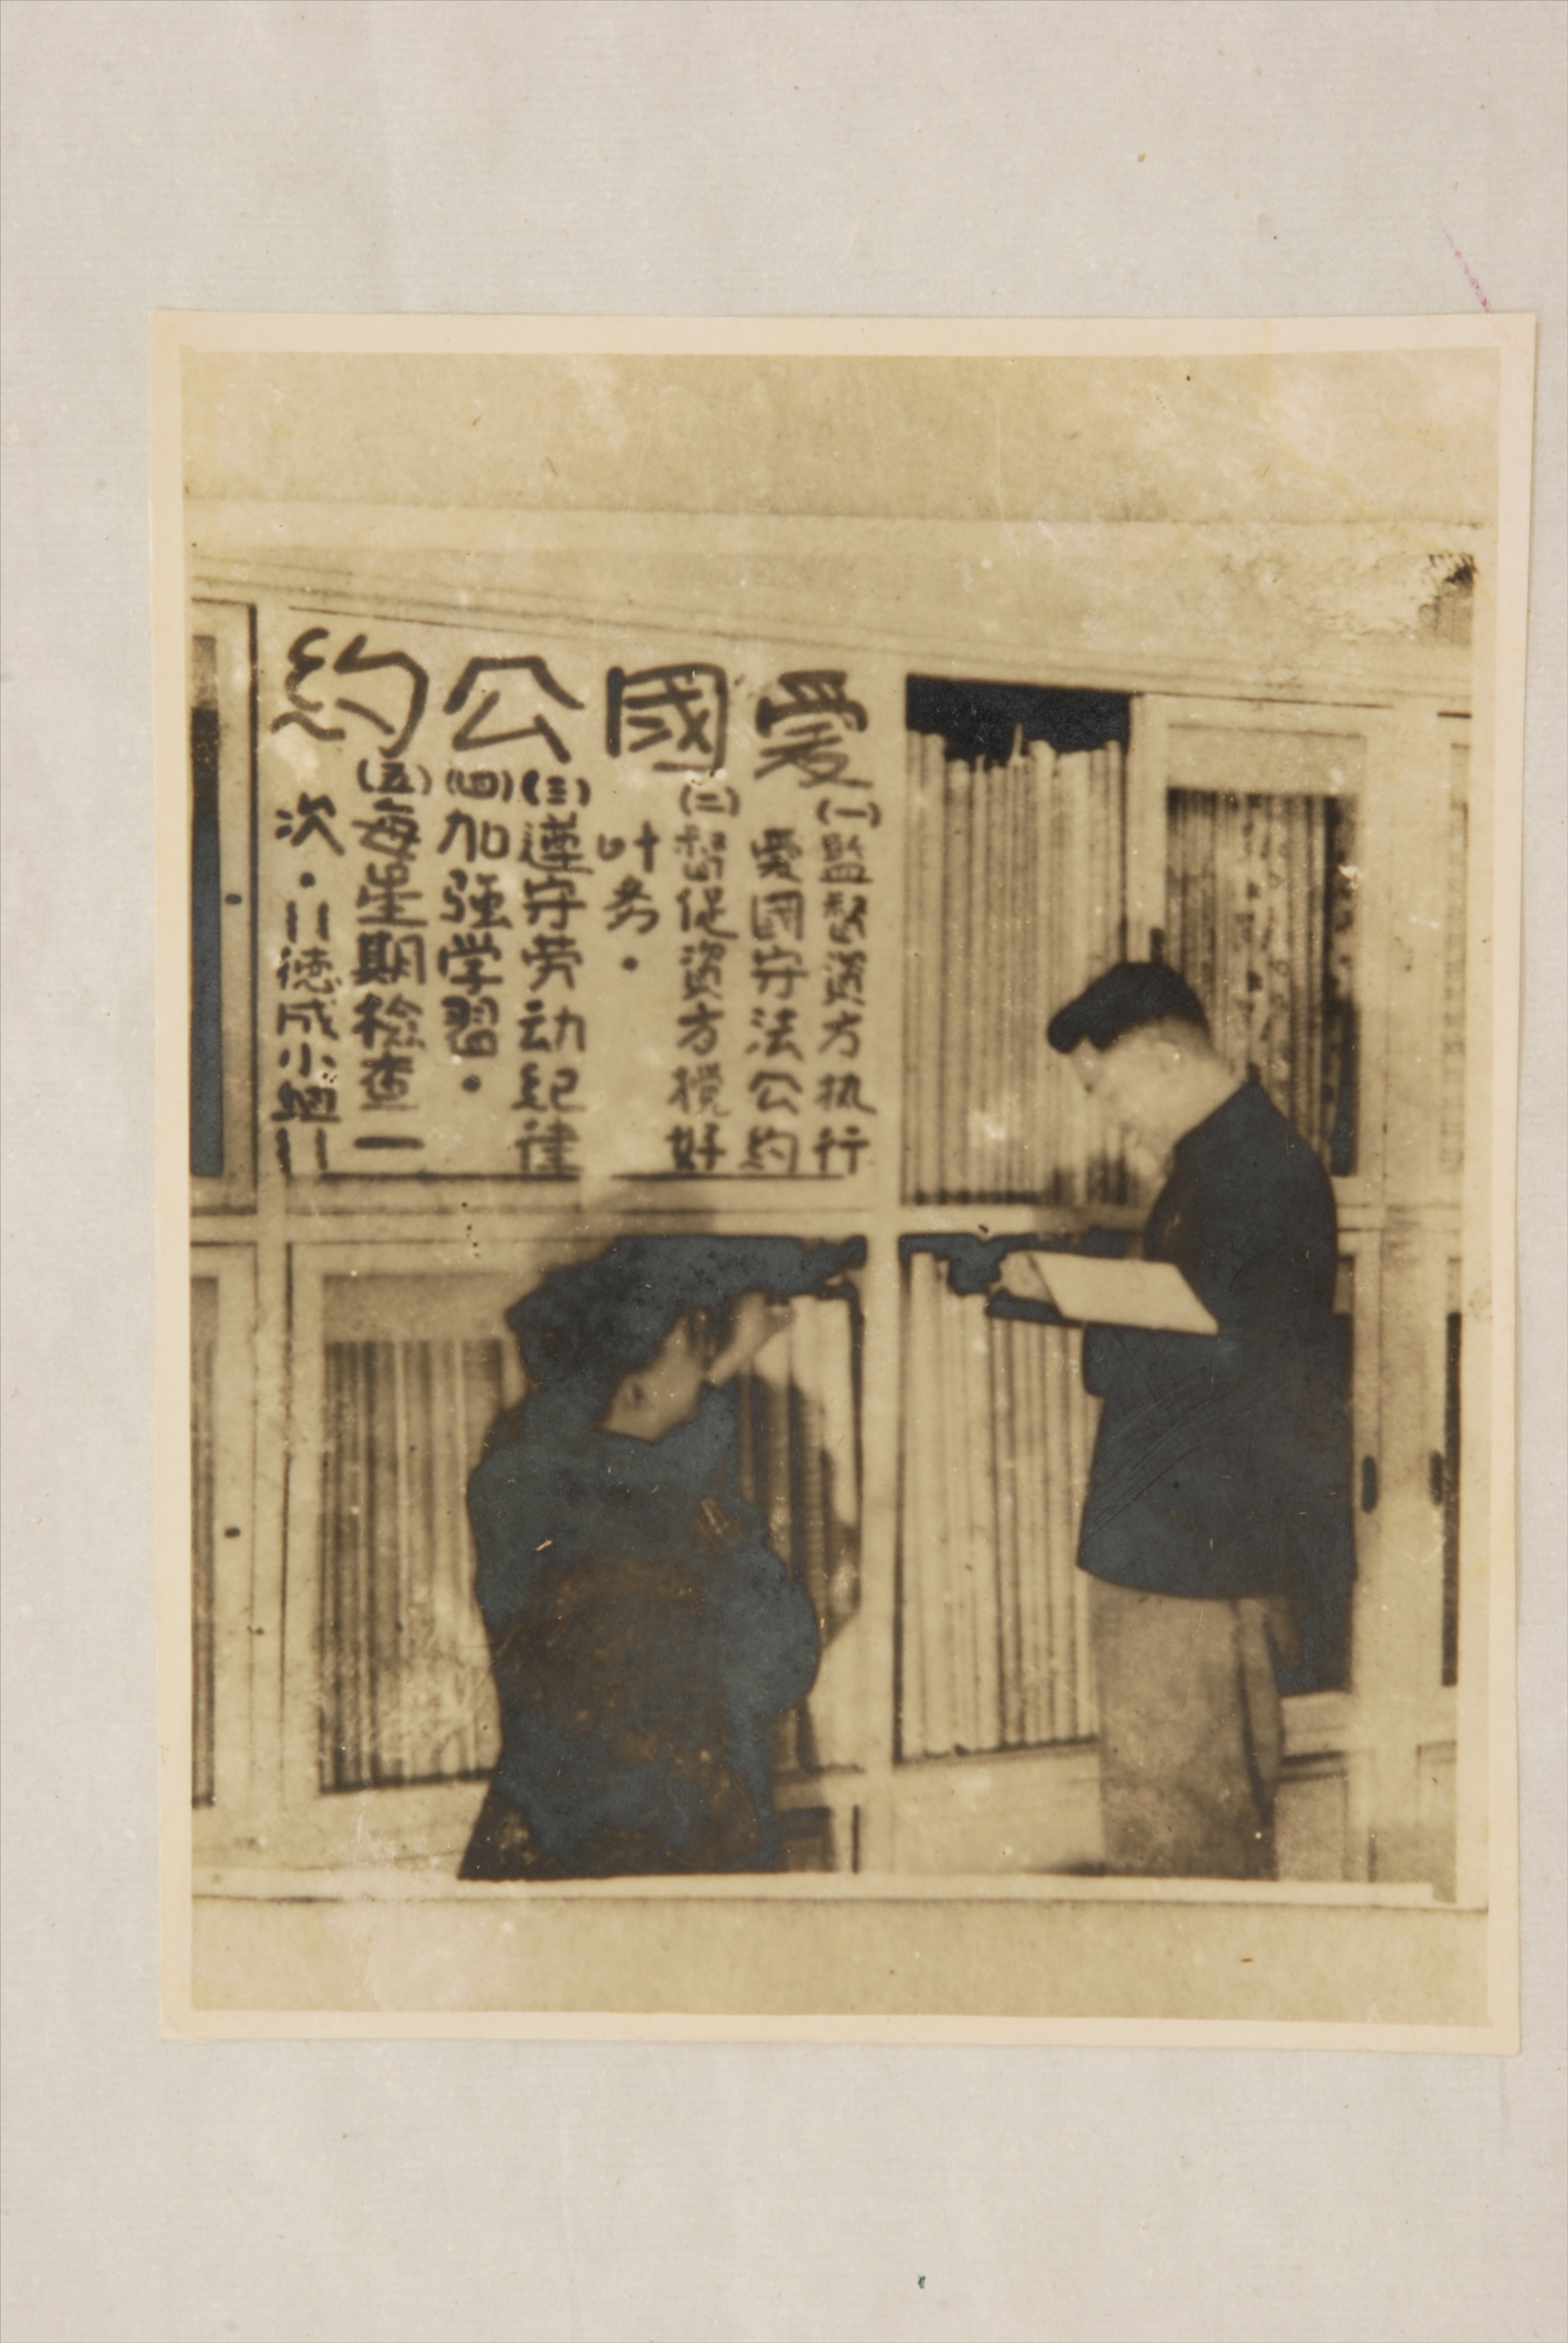 愛國公約
(一)監督資方执行
愛國守法公約
(二)督促資方搅好
叶务·
(三)遵守劳动紀律
(四)加强学習·
(五)每星期檢查一
次·＝德成小組＝